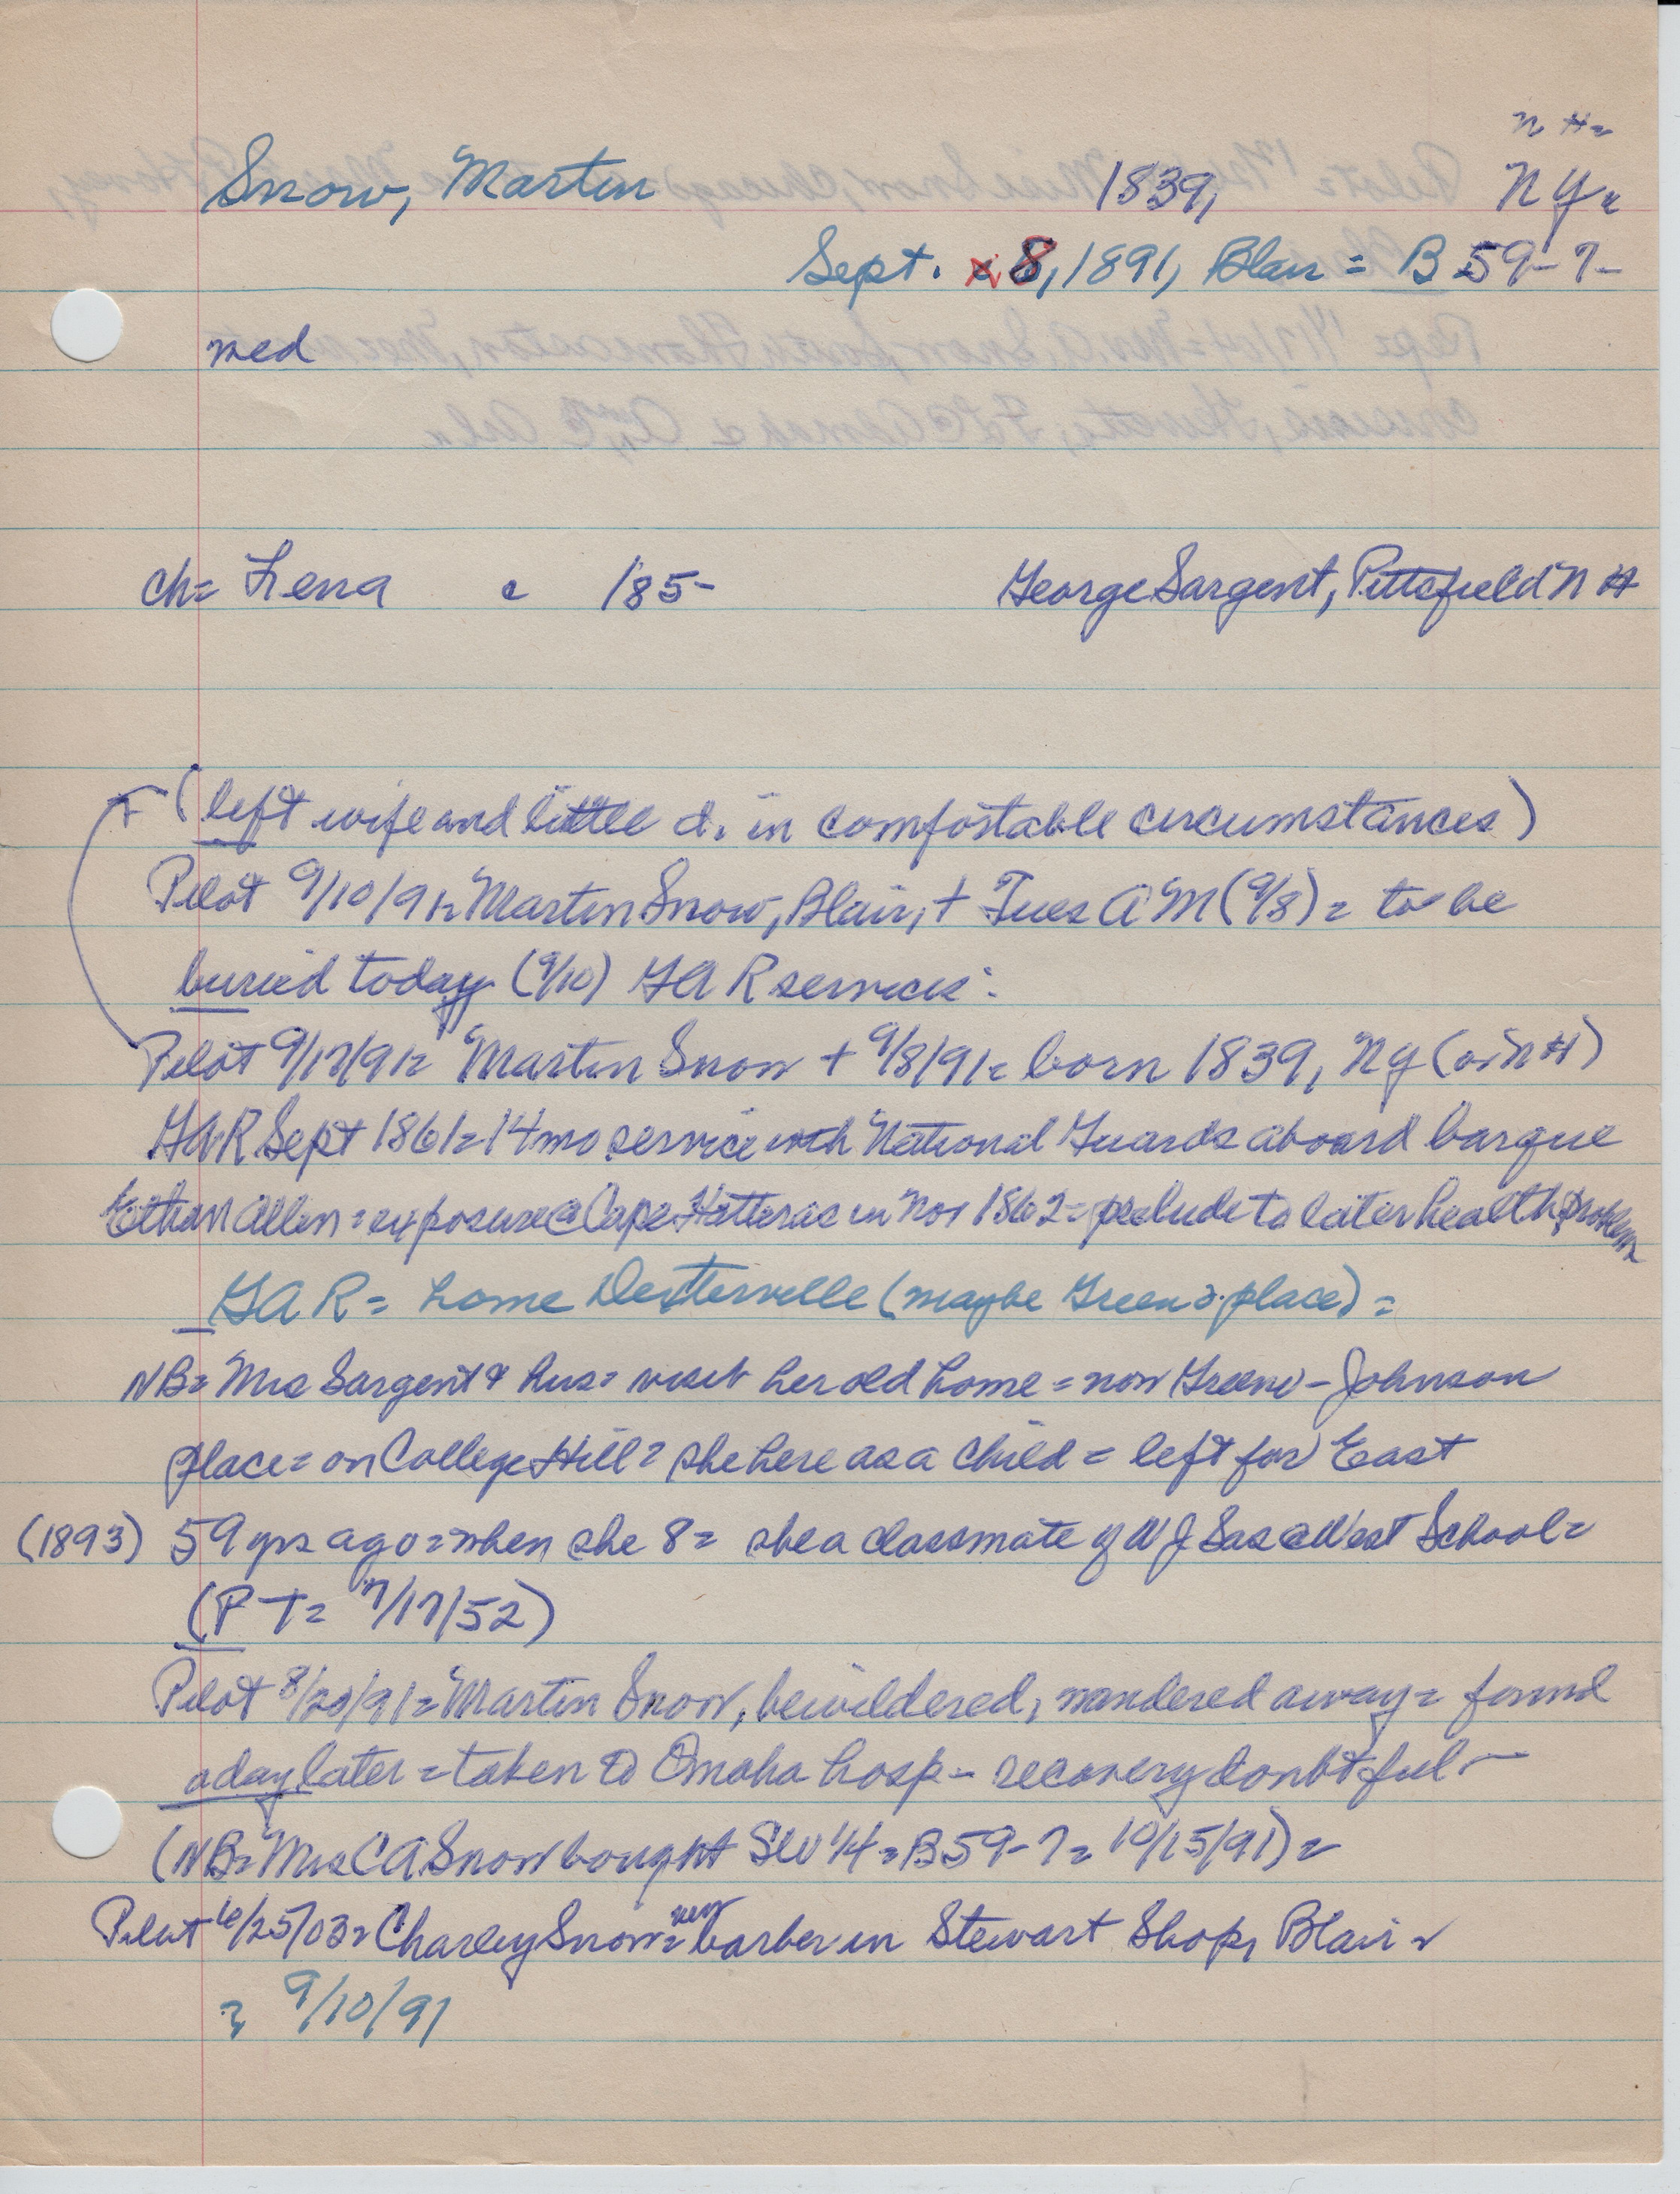 N H =
Snow, Martin 1839, N Y =
Sept. 8, 1891, Blair = B 59-7-
med
ch = Lena c 185- George Sargent, Pittsfield N H
+ (left wife and little d. in comfortable circumstances)
Pilot 9/10/91 = Martin Snow, Blair, + Tues A M (9/8) = to be
buried today (9/10) G A R services.
Pilot 9/17/91 = Martin Snow + 9/8/91 = born 1839, N Y (or N H)
GAR Sept 1861 = 14 mo service with National Guards aboard barque
Ethan Allen = exposure @ Cape Hatteras in Nov 1862 = prelude to later health problems
G A R = home Dexterville (maybe Green's place) =
NB = Mrs Sargent & hus = visit her old home = now Greene-Johnson
place = on College Hill = she here as a child = left for East
(1893) 59 yrs ago = when she 8 = she a classmate of W J Sas @ West School =
(P T = 7/17/52)
Pilot 8/20/91 = Martin Snow, bewildered, wandered away = found
a day later = taken to Omaha hosp - recovery doubtful -
(NB = Mrs C A Snow bought SW 1/4 = B 59-7 = 10/15/91) =
Pilot 6/25/03 = Charley Snow = new barber in Stewart Shop, Blair =
= 9/10/91